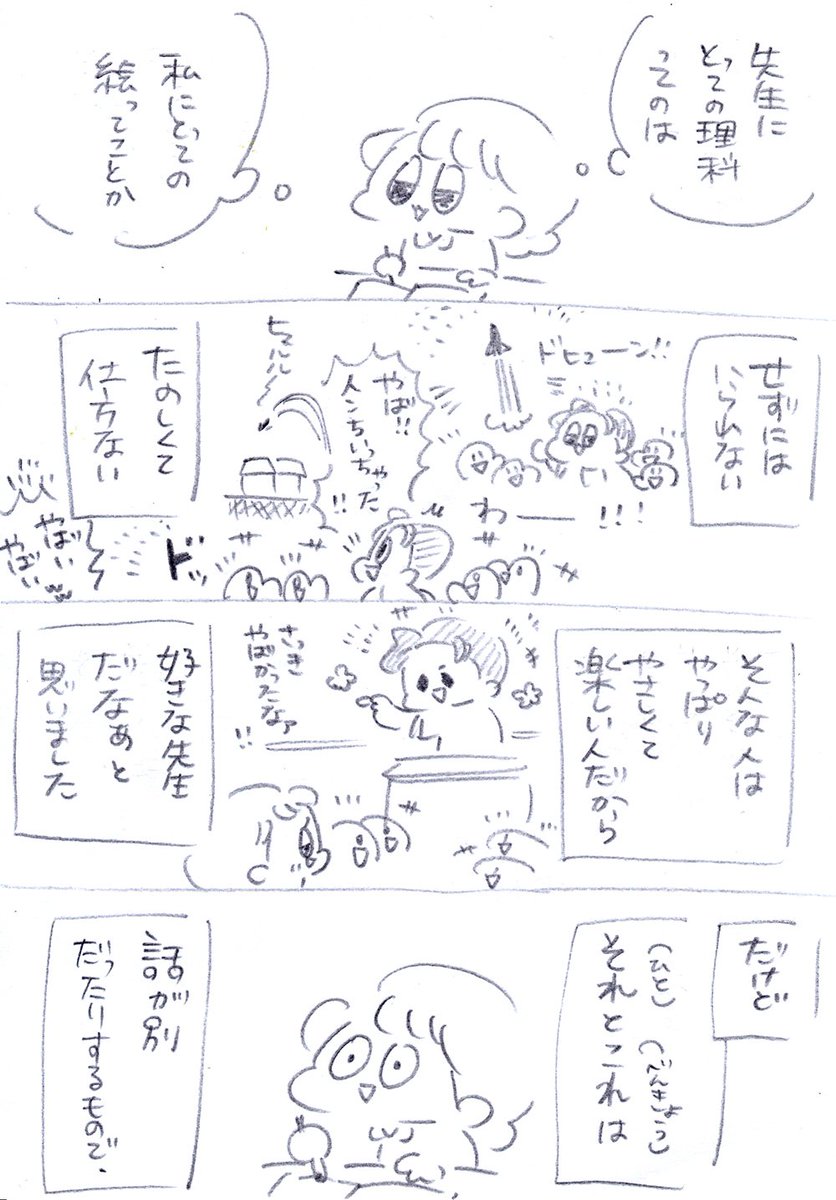 先生に
とっての理科
ってのは
私にとっての
絵ってことか
せずには
いらんない
ドヒューン!!
わー!!!
やば!!
人んちいっちゃった
!!
ヒュルルル〜
たのしくて
仕方ない
ドッ
やばい
やばいww
そんな人は
やっぱり
やさしくて
楽しい人だから
さっき
やばかったなァ
!!
好きな先生
だなあと
思いました
だけど
(ひと)(べんきょう)
それとこれは
話が別
だったりするもので、